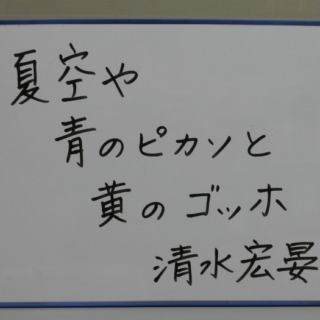 夏空や
青のピカソと
黄のゴッホ
清水宏晏